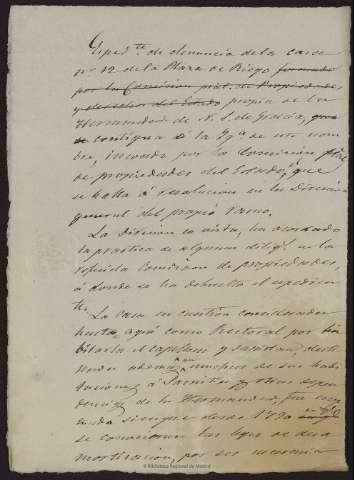 Exped.te de denuncia de la casa
n.º 12 de la Plaza de Riego formado
por la Comision pral. de Propiedades
y derechos del Estado propia de la
Hermandad de N. S. de Gracia, que
contigua á la Yg.a de este nom
bre, incoado por la Comision pral
de propiedades del Estado, que
se halla á resolucion en la Direccion
general del propio ramo.
La Direccion en vista, ha acordado
la practica de algunas dilig.s en la
referida Comision de propiedades,
á donde se ha debuelto el espedien
te.
La casa en cuestion considerada
hasta aqui como Rectoral por ha
bitarla el capellan y sacristan, desti
nados ademas muchos de sus habi
taciones á Sacristia y otras depen
dencias de la Hermandad, fue
siempre desde 1820
se conocieron las leyes de desa
mortizacion, por ser
© Biblioteca Regional de Madrid